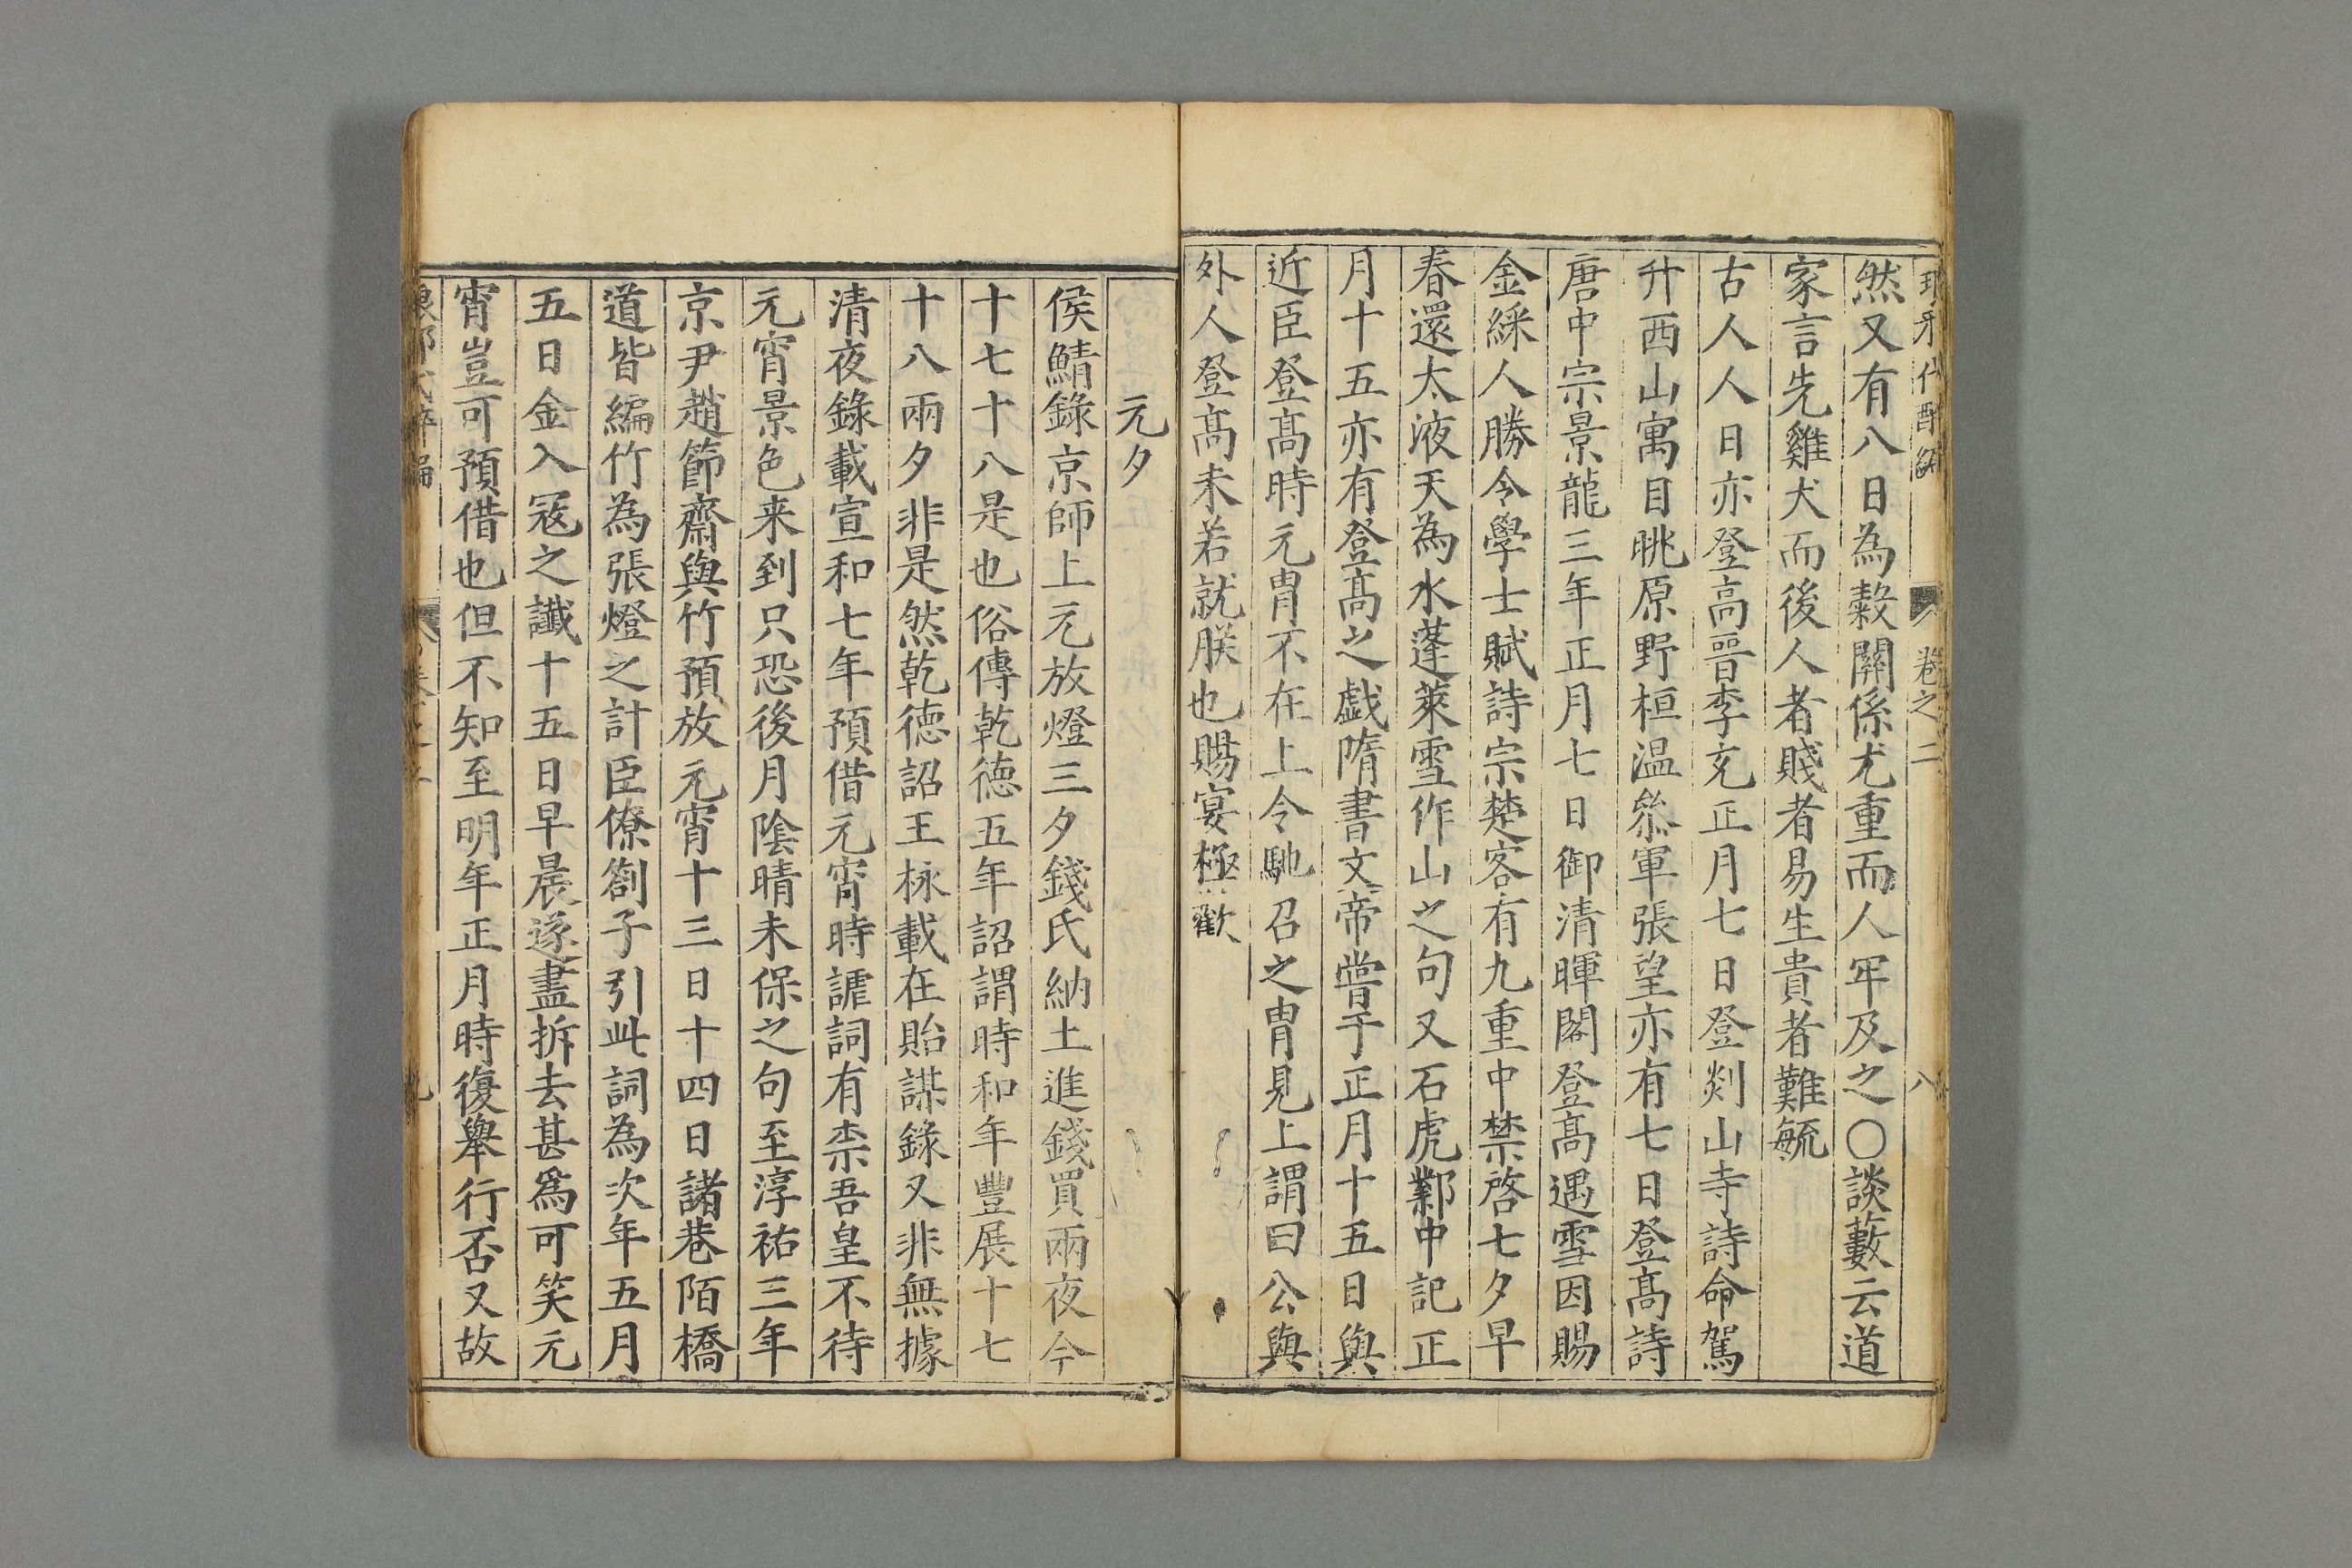 卷之二
八
然又有八日為穀關係尤重而人罕及之○談藪云道
家言先雞犬而後人者賤者易生貴者難毓
古人人日亦登高晉李充正月七日登剡山寺詩命駕
升西山寓目眺原野桓温叅軍張望亦有七日登高詩
唐中宗景龍三年正月七日御清暉閣登高遇雪因賜
金綵人勝令學士賦詩宗楚客有九重中禁啓七夕早
春還太液天為水蓬萊雪作山之句又石虎鄴中記正
月十五亦有登高之戯隋書文帝嘗于正月十五日與
近臣登高時元胄不在上令馳召之胄見上謂曰公與
外人登高未若就朕也賜宴極歡
元夕
侯鯖錄京師上元放燈三夕錢氏納土進錢買兩夜今
十七十八是也俗傳乾徳五年詔謂時和年豐展十七
十八兩夕非是然乾徳詔王栐載在貽謀錄又非無據
清夜錄載宣和七年預借元宵時謔詞有柰吾皇不待
元宵景色来到只恐後月陰晴未保之句至淳祐三年
京尹趙節齋與竹預放元宵十三日十四日諸巷陌橋
道皆編竹為張燈之計臣僚劄子引此詞為次年五月
五日金入冦之讖十五日早晨遂盡拆去甚爲可笑元
宵豈可預借也但不知至明年正月時復舉行否又故